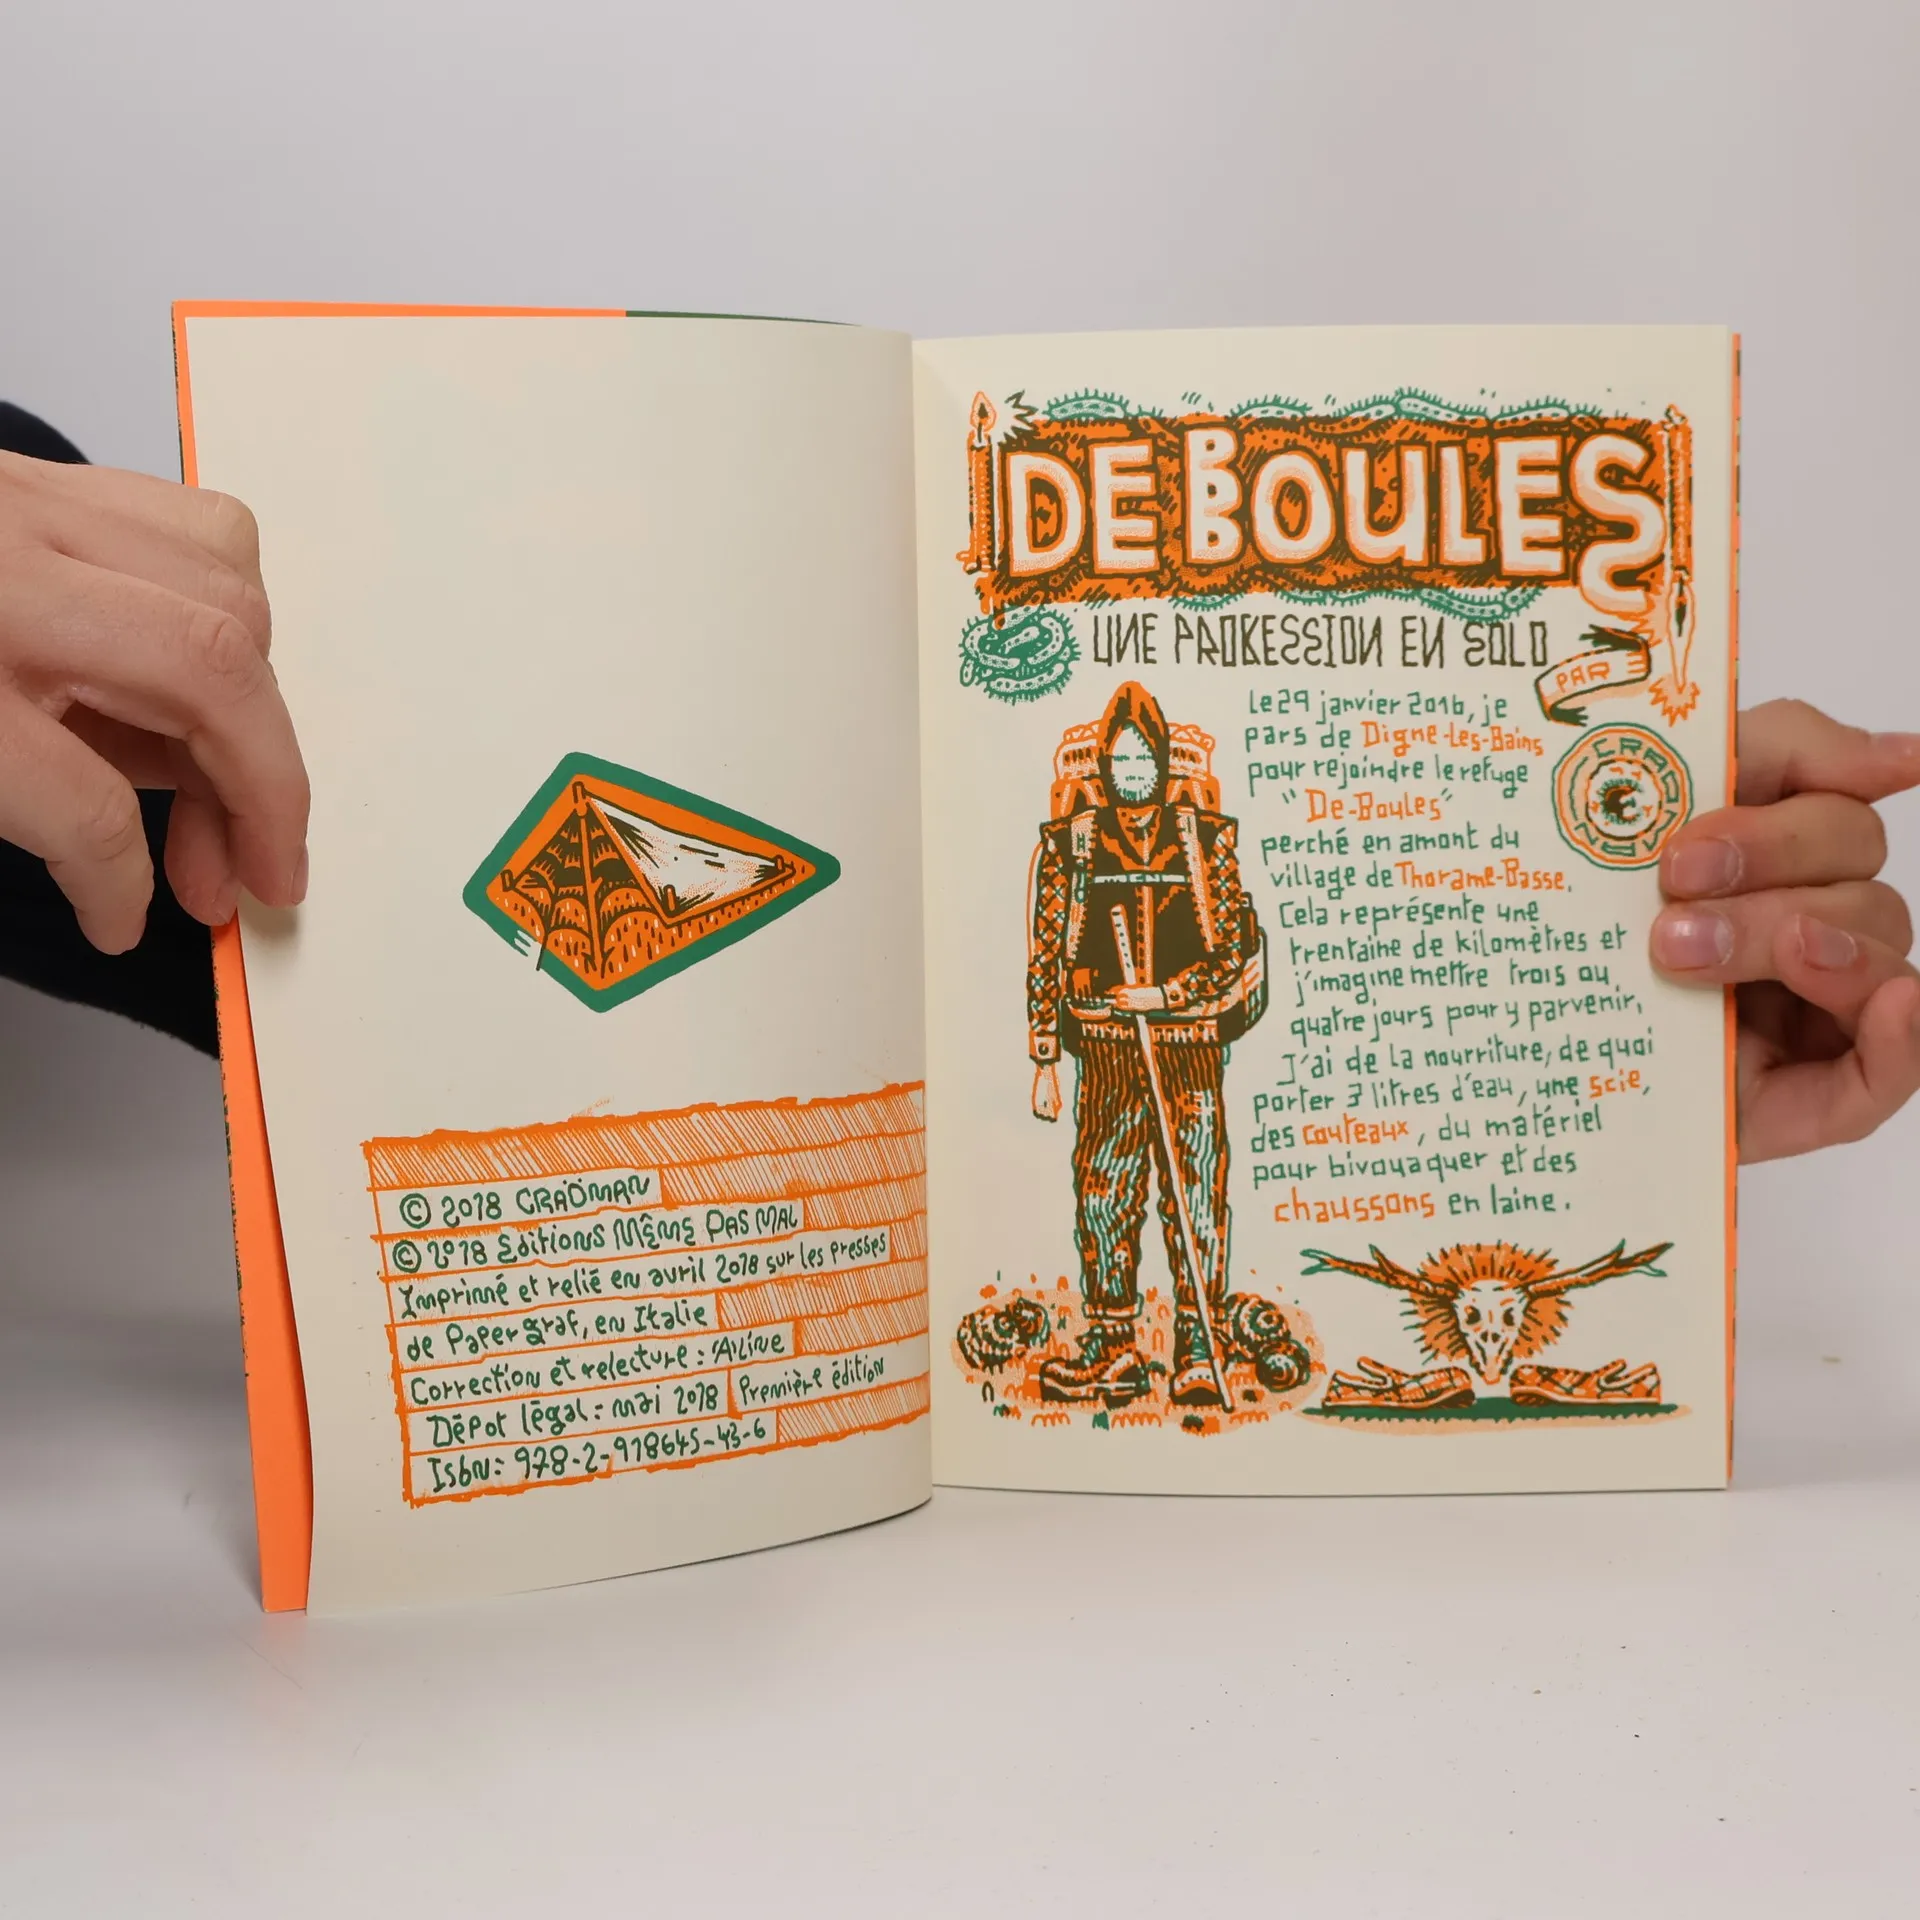 © 2018 CRAÖMAN
© 2018 Éditions MÊME PAS MAL
Imprimé et relié en avril 2018 sur les presses
de Papergraf, en Italie
Correction et relecture : Aline
Dépot légal : mai 2018 Première édition
Isbn : 978-2-918645-43-6
DE BOULES
UNE PROGRESSION EN SOLO
PAR
CRAOMAN
Le 29 janvier 2016, je
pars de Digne-Les-Bains
pour rejoindre le refuge
"De-Boules"
perché en amont du
village de Thorame-Basse.
Cela représente une
trentaine de kilomètres et
j'imagine mettre trois ou
quatre jours pour y parvenir.
J'ai de la nourriture, de quoi
porter 3 litres d'eau, une scie,
des couteaux, du matériel
pour bivouaquer et des
chaussons en laine.